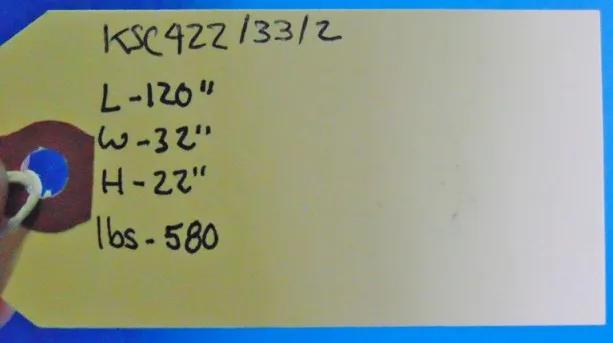 KSC422/33/2
L-120"
W-32"
H-22"
lbs-580